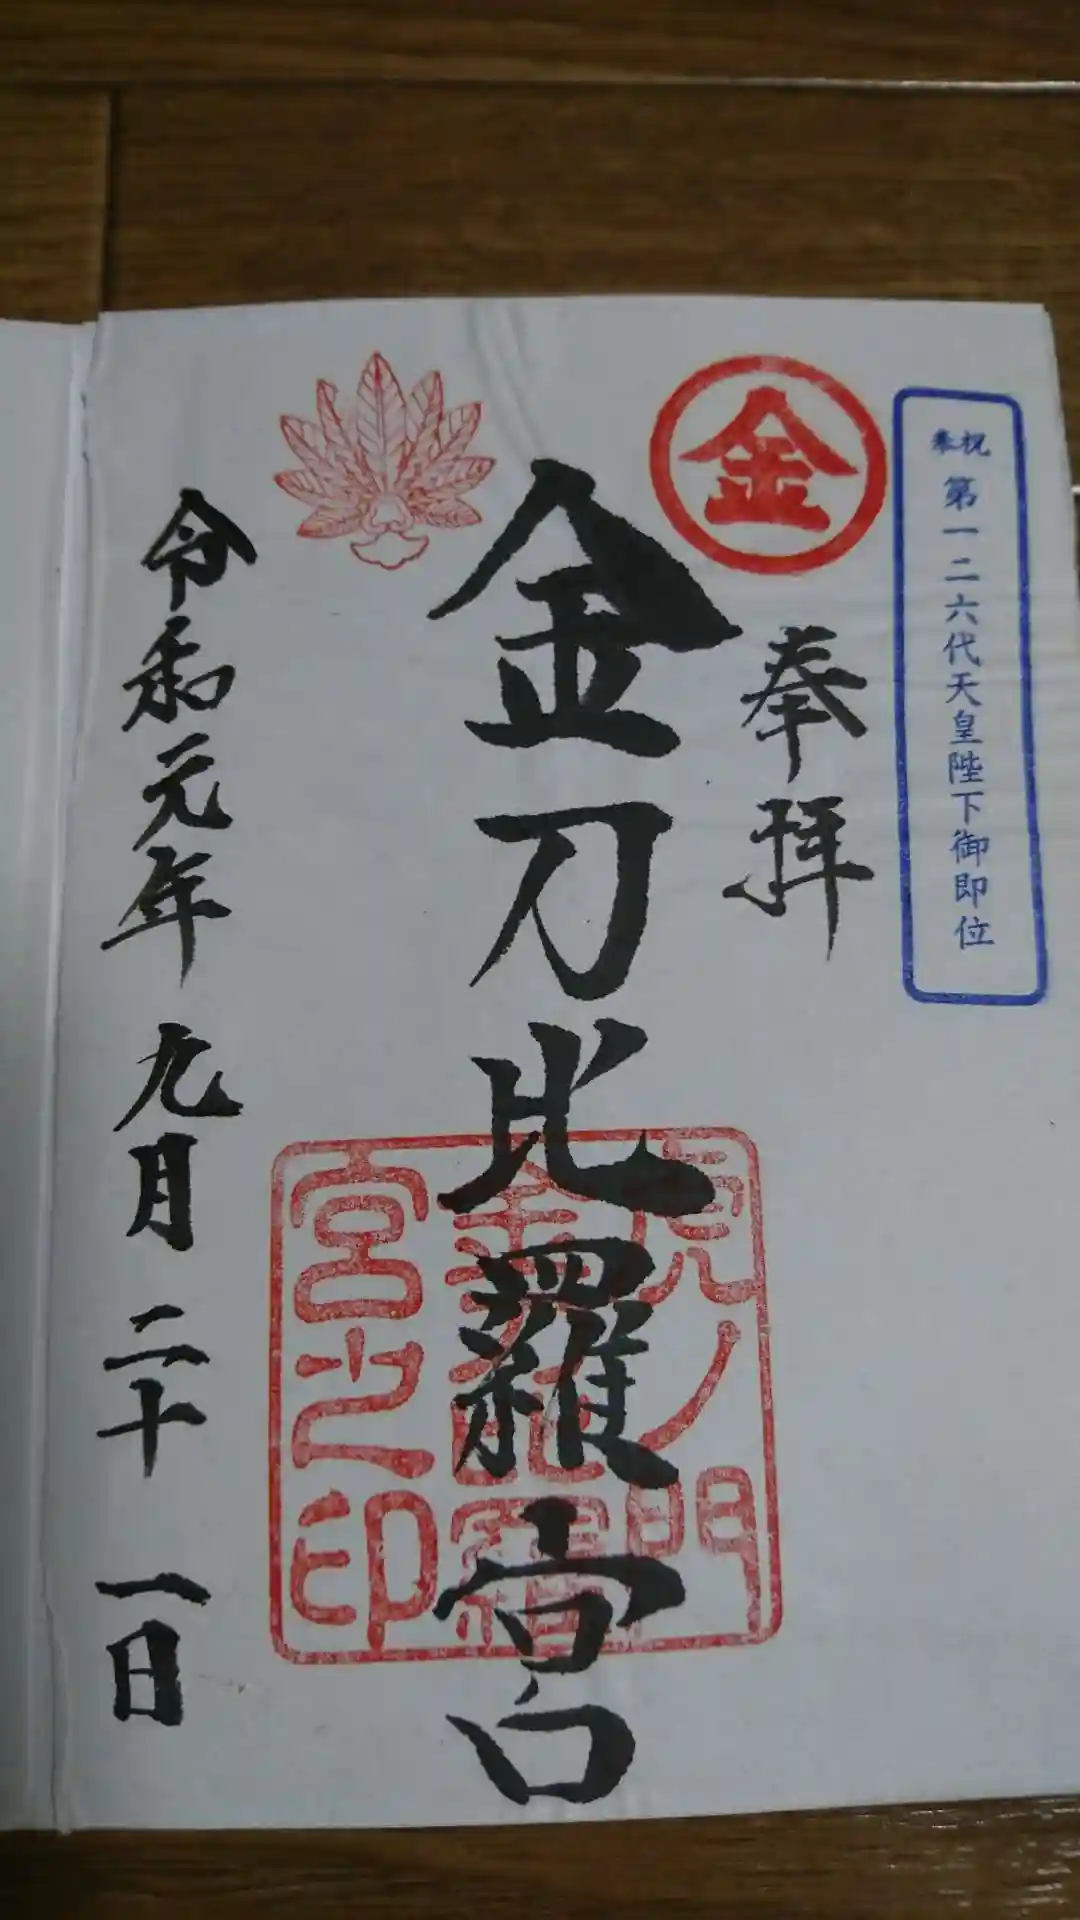 奉祝
第一二六代天皇陛下御即位
金
奉拝
金刀比羅宮
虎ノ門
金刀比羅
宮之印
令和元年九月二十一日